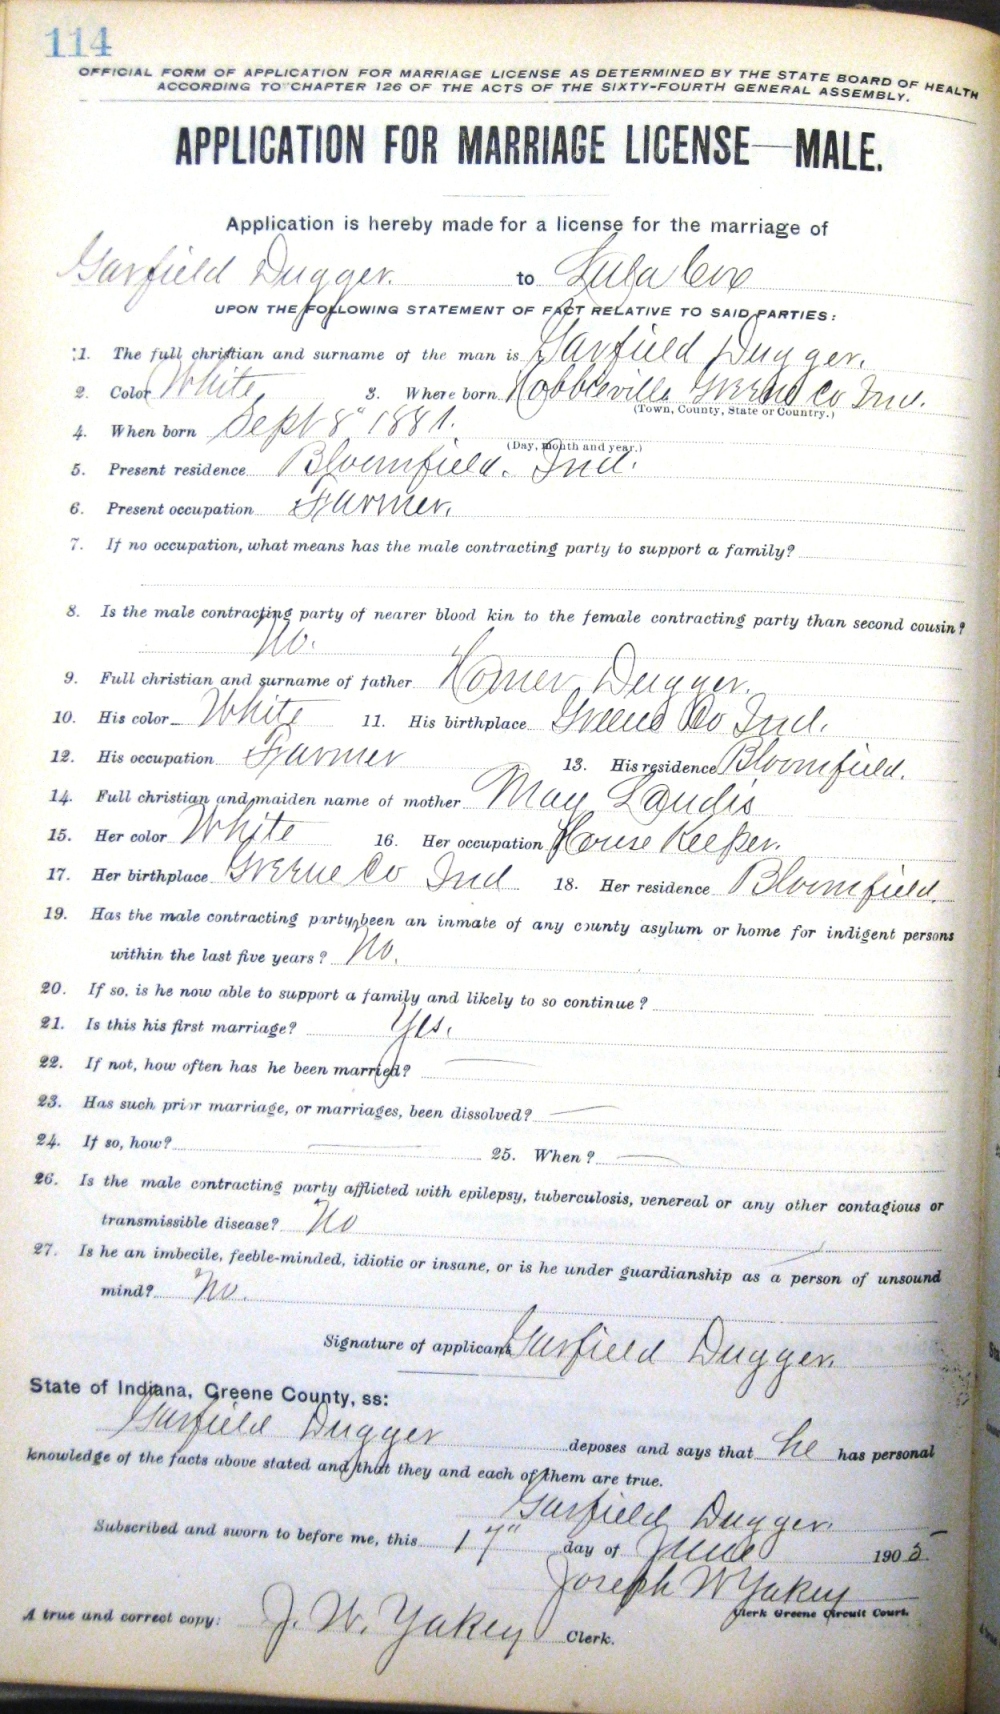 114
OFFICIAL FORM OF APPLICATION FOR MARRIAGE LICENSE AS DETERMINED BY THE STATE BOARD OF HEALTH
ACCORDING TO CHAPTER 126 OF THE ACTS OF THE SIXTY-FOURTH GENERAL ASSEMBLY.
APPLICATION FOR MARRIAGE LICENSE—MALE.
Application is hereby made for a license for the marriage of
Garfield Dugger. to Lula Cox
UPON THE FOLLOWING STATEMENT OF FACT RELATIVE TO SAID PARTIES:
1. The full christian and surname of the man is Garfield Dugger.
2. Color White 3. Where born Nobbieville Greene Co Ind.
(Town, County, State or Country.)
4. When born Sept 8" 1881.
(Day, month and year.)
5. Present residence Bloomfield. Ind.
6. Present occupation Farmer.
7. If no occupation, what means has the male contracting party to support a family?
8. Is the male contracting party of nearer blood kin to the female contracting party than second cousin?
No.
9. Full christian and surname of father Homer Dugger.
10. His color White 11. His birthplace Greene Co Ind.
12. His occupation Farmer 13. His residence Bloomfield.
14. Full christian and maiden name of mother May Landis
15. Her color White 16. Her occupation House Keeper.
17. Her birthplace Greene Co Ind 18. Her residence Bloomfield.
19. Has the male contracting party been an inmate of any county asylum or home for indigent persons
within the last five years? No.
20. If so, is he now able to support a family and likely to so continue?
21. Is this his first marriage? Yes.
22. If not, how often has he been married? —
23. Has such prior marriage, or marriages, been dissolved? —
24. If so, how? — 25. When? —
26. Is the male contracting party afflicted with epilepsy, tuberculosis, venereal or any other contagious or
transmissible disease? No
27. Is he an imbecile, feeble-minded, idiotic or insane, or is he under guardianship as a person of unsound
mind? No.
Signature of applicant Garfield Dugger.
State of Indiana, Greene County, ss:
Garfield Dugger deposes and says that he has personal
knowledge of the facts above stated and that they and each of them are true.
Garfield Dugger.
Subscribed and sworn to before me, this 17" day of June 1905
Joseph W Yakey
Clerk Greene Circuit Court.
A true and correct copy: J. W. Yakey Clerk.